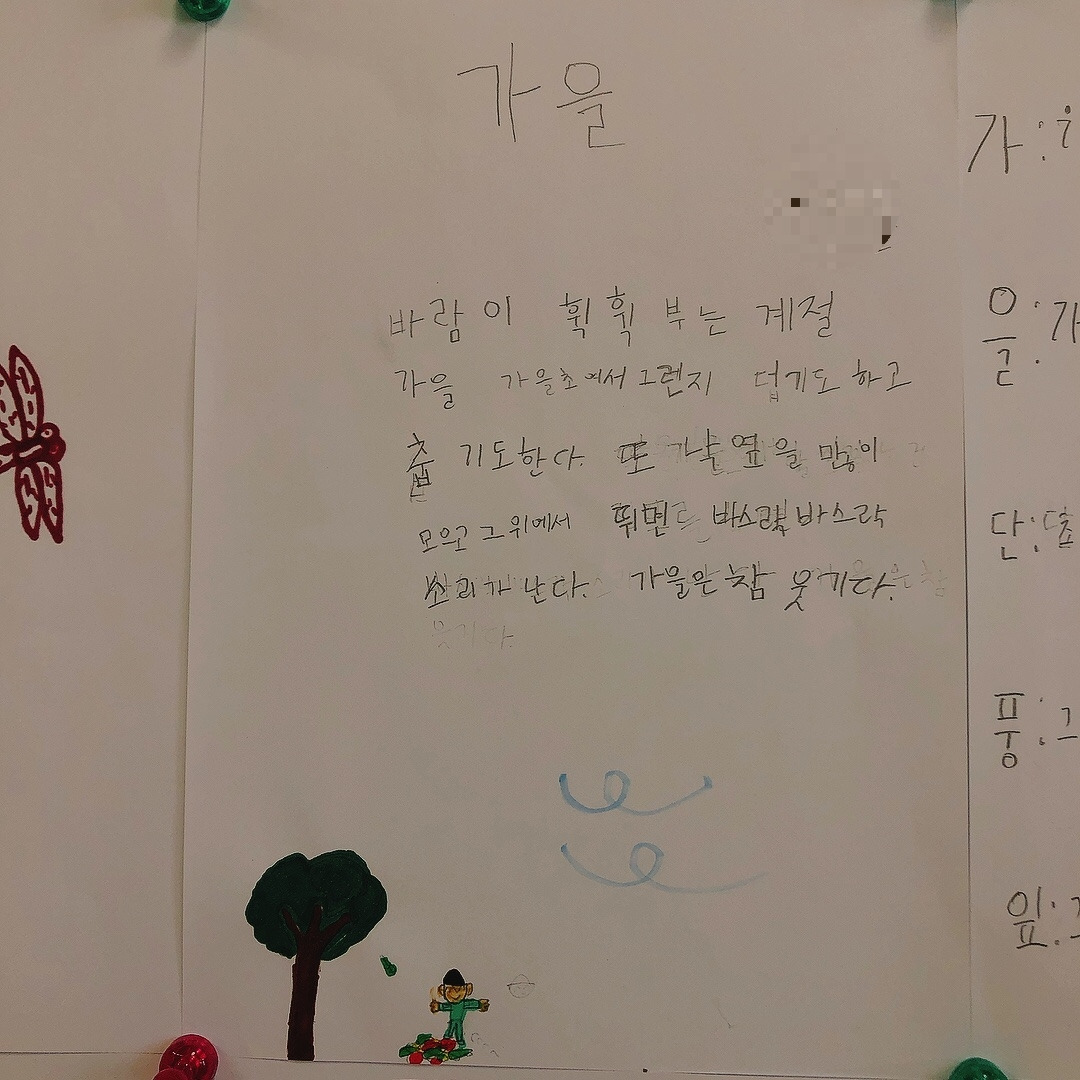 가을
바람이 휙휙 부는 계절
가을 가을초여서그런지 덥기도 하고
춥기도한다. 또 가낙엽을 많이
모으고 그위에서 뛰면 바스락 바스락
소리가 난다. 가을은 참 웃기다.
웃기다.
가:
을:가
단:
풍:그
잎: